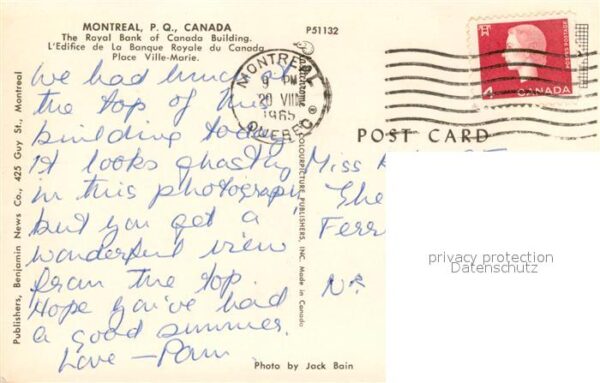 MONTREAL, P. Q., CANADA
The Royal Bank of Canada Building.
L'Edifice de La Banque Royale du Canada
Place Ville-Marie.
P51132
We had lunch at
the top of this
building today
it looks ghastly
in this photograph,
but you get a
wonderful view
from the top.
Hope you've had
a good summer.
Love — Pam
Publishers, Benjamin News Co., 425 Guy St., Montreal
Plastichrome ®
COLOURPICTURE PUBLISHERS, INC. Made in Canada
MONTREAL
9 PM
20 VIII
1965
QUEBEC
4 CANADA
POSTES POSTAGE
POST CARD
Miss
She
Ferr
privacy protection
Datenschutz
Photo by Jack Bain